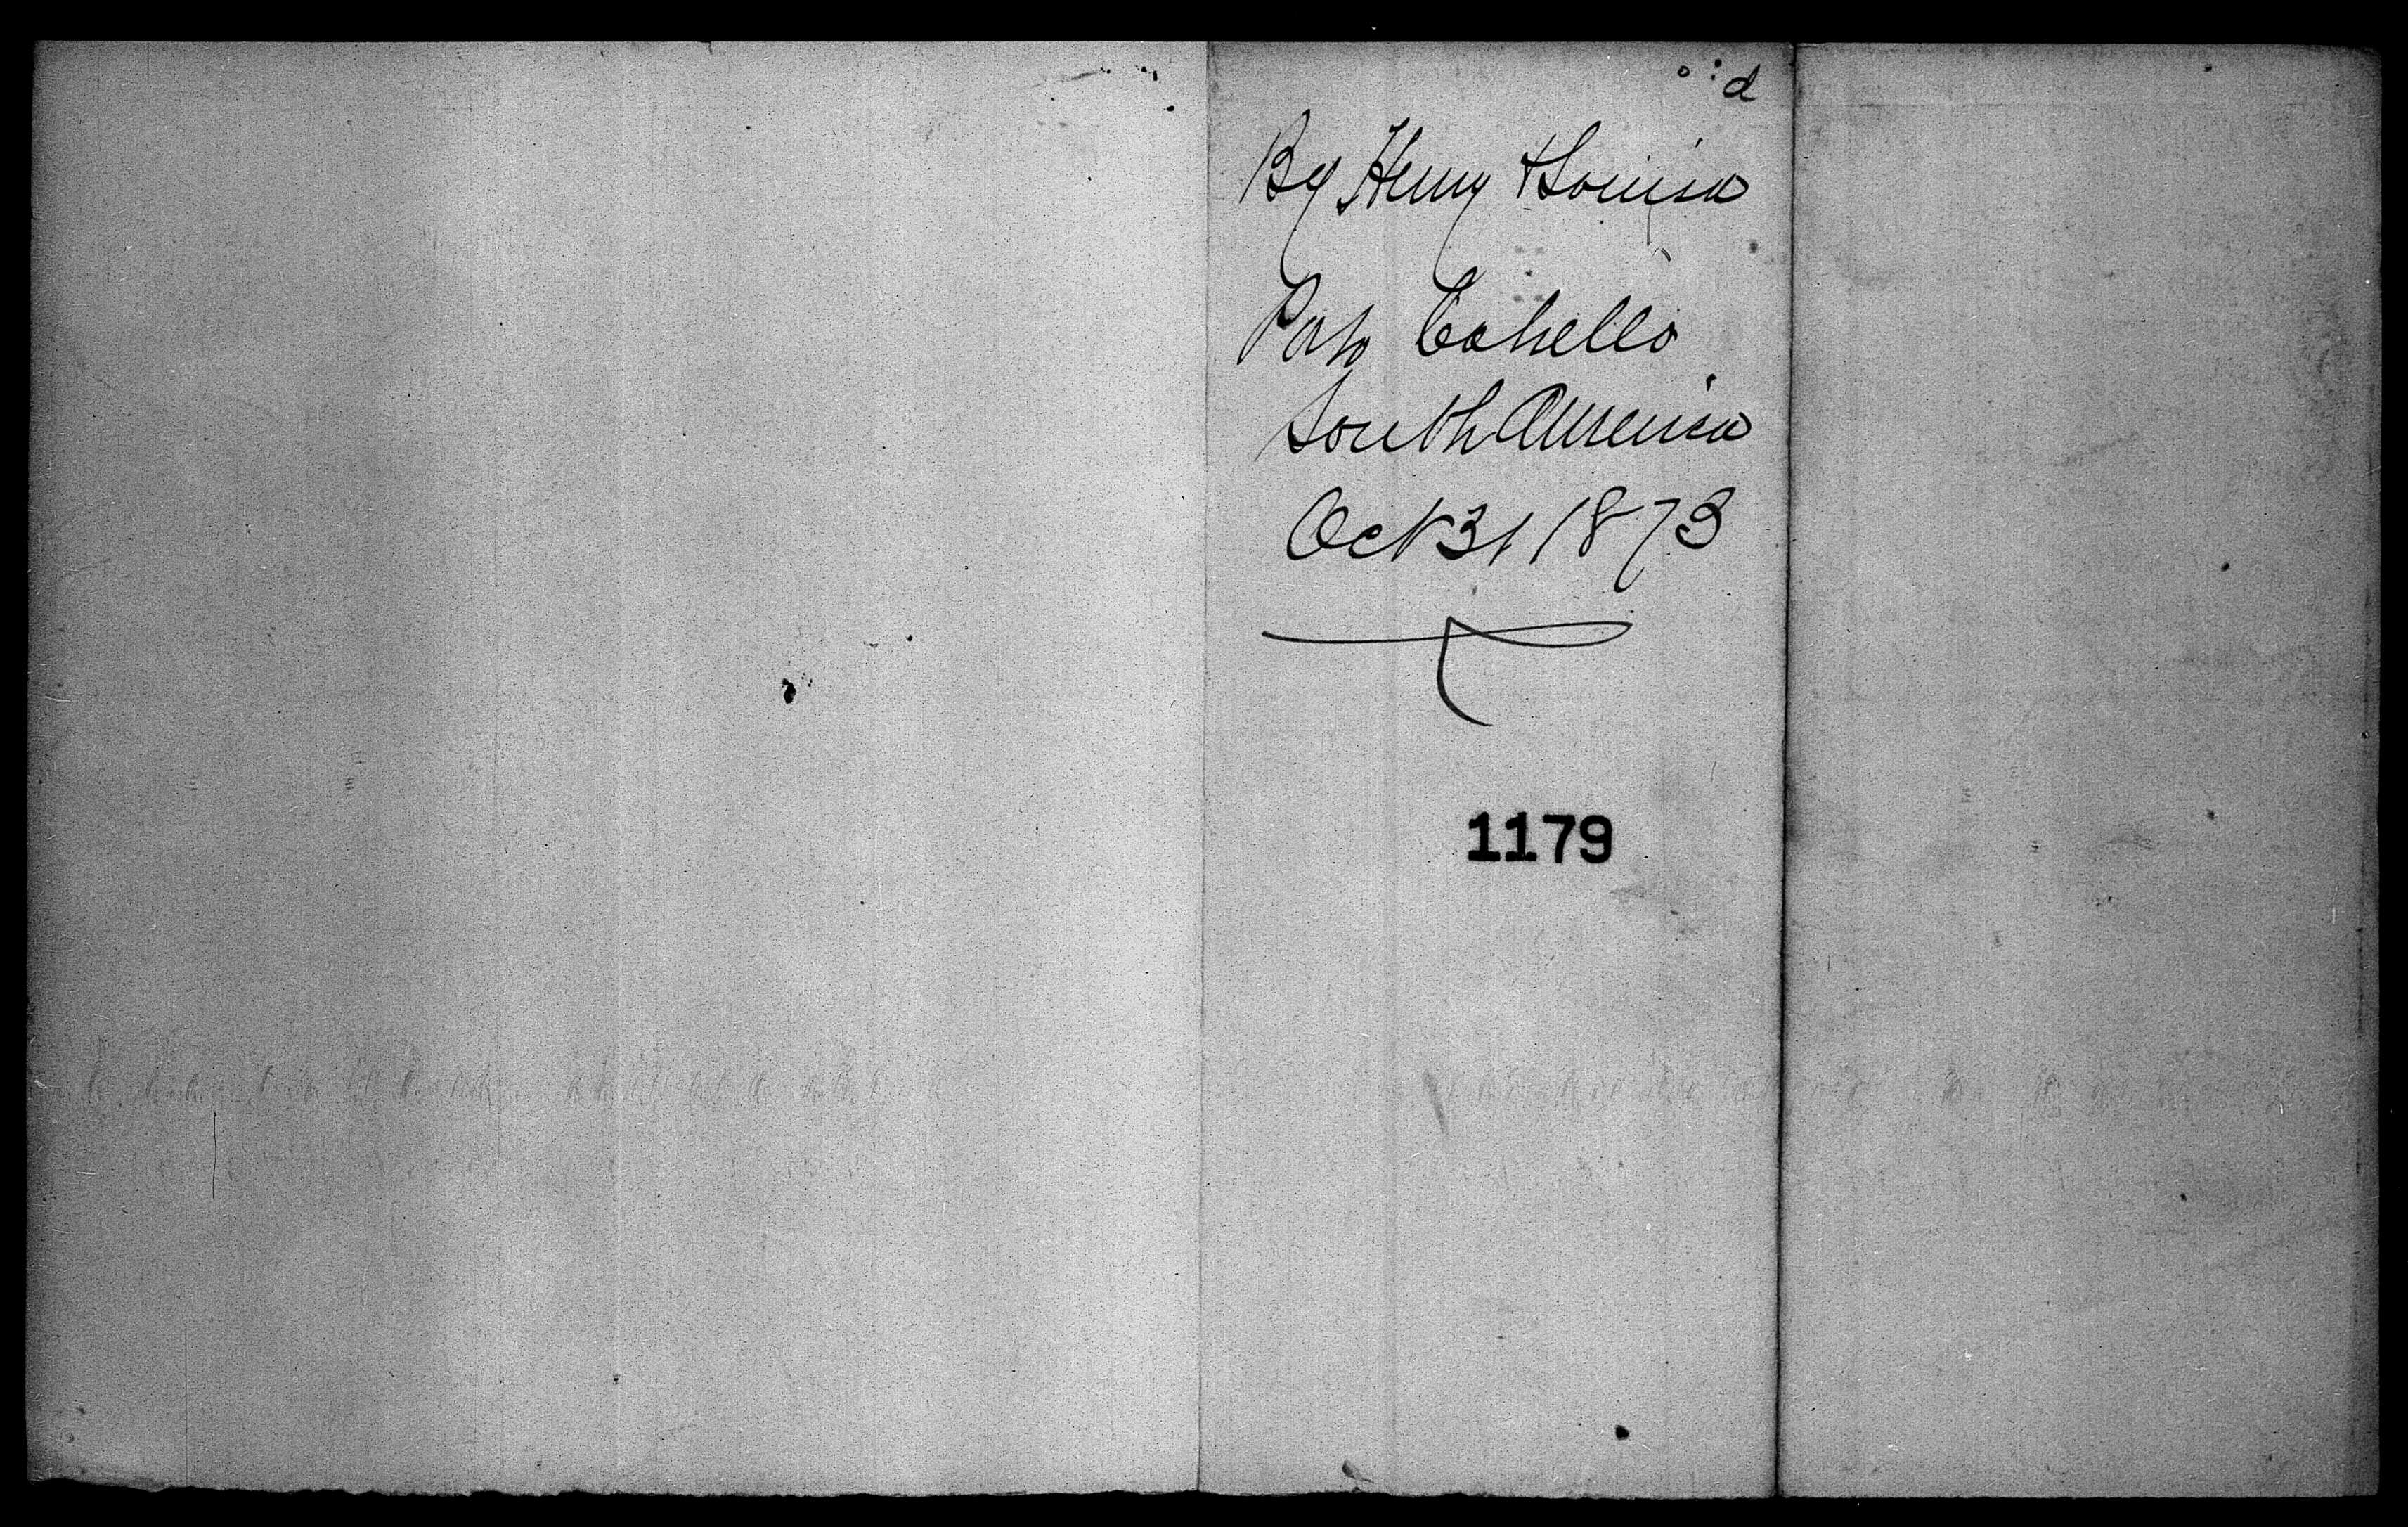 d
By Henry & Louisa
Poto Cabello
South America
Oct 31 1873
1179